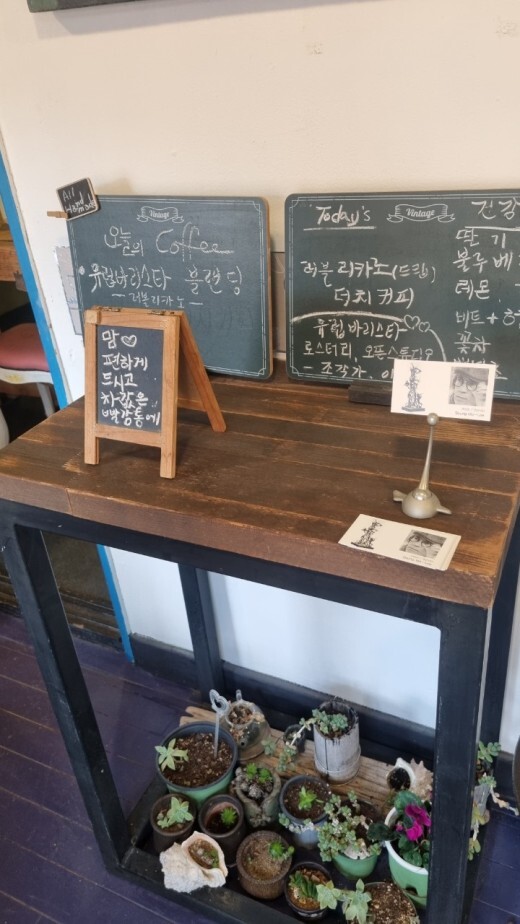 All
Hand made
Vintage
오늘의 Coffee
유럽바리스타 블랜딩
- 더블리카노 -
맘♡
편하게
드시고
차값은
빨강통에
Today's
Vintage
더블리카노(드립)
더치커피
유럽바리스타
로스터리,
- 조각가.
건강
딸기
블루베
레몬
비트+
꽃차